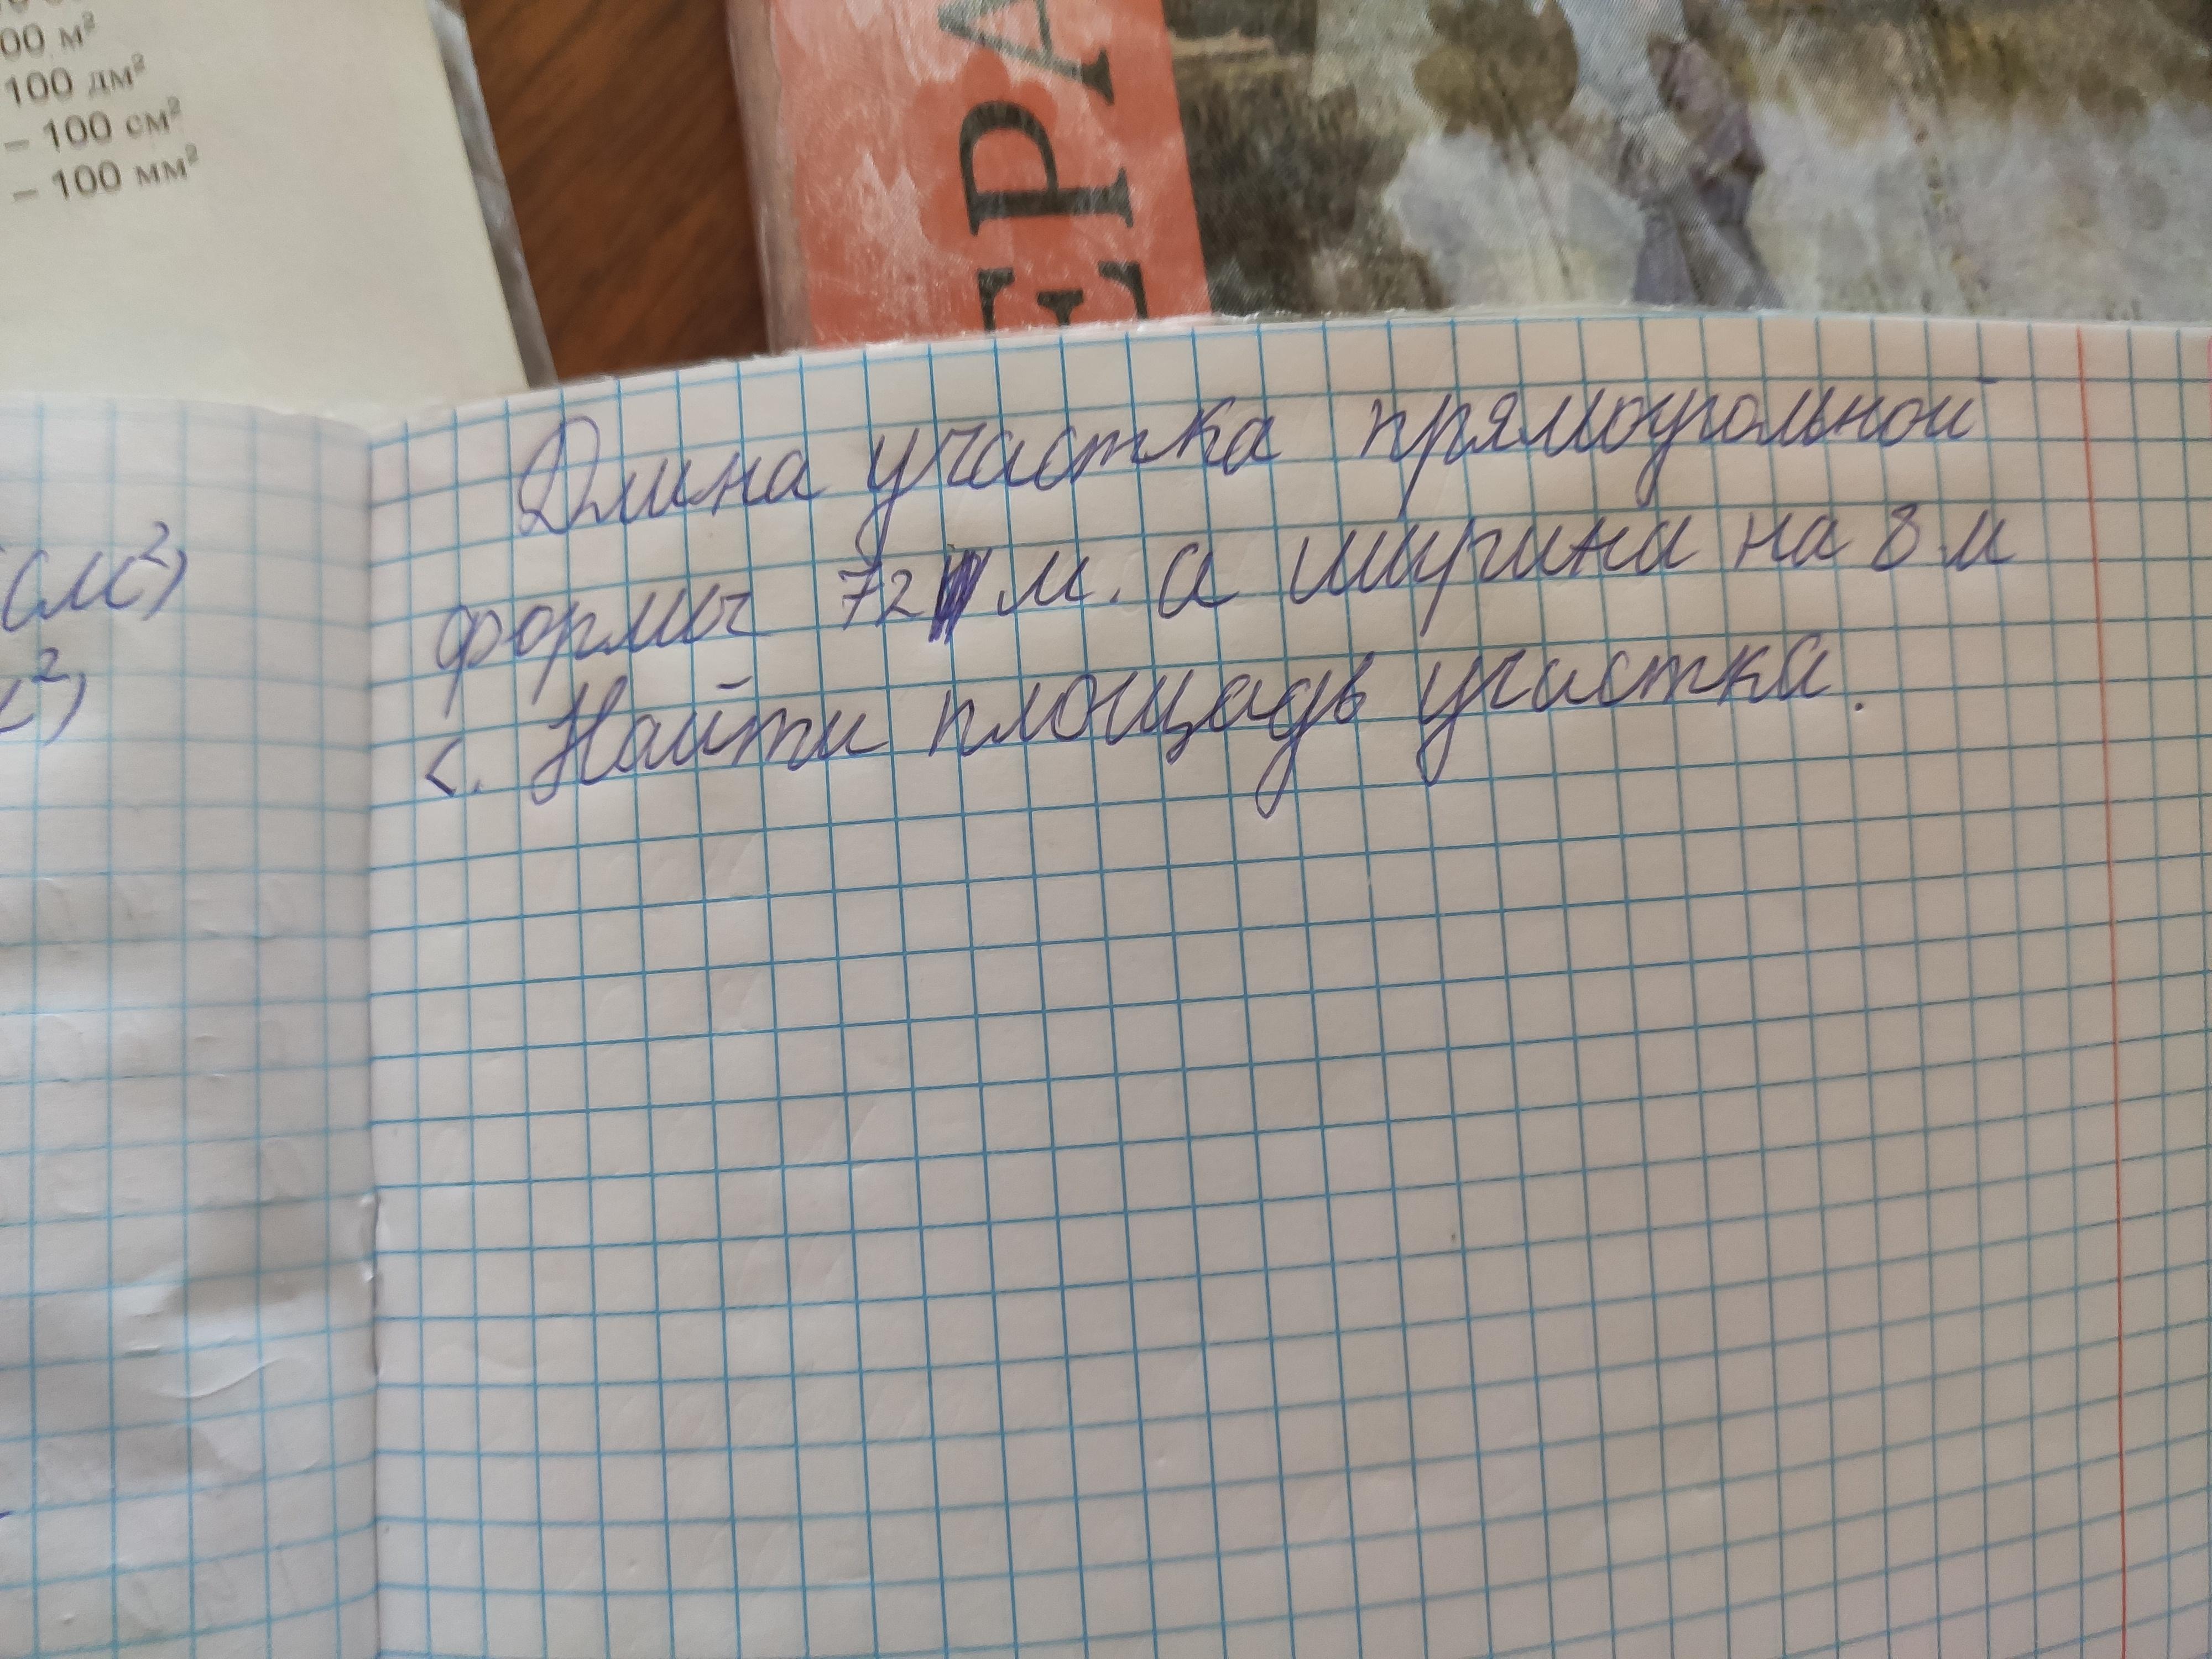 00 м²
100 дм²
– 100 см²
– 100 мм²
ЕРА
Длина участка прямоугольной
формы 72 м. а ширина на 8 м
<. Найти площадь участка.
(м²)
²)